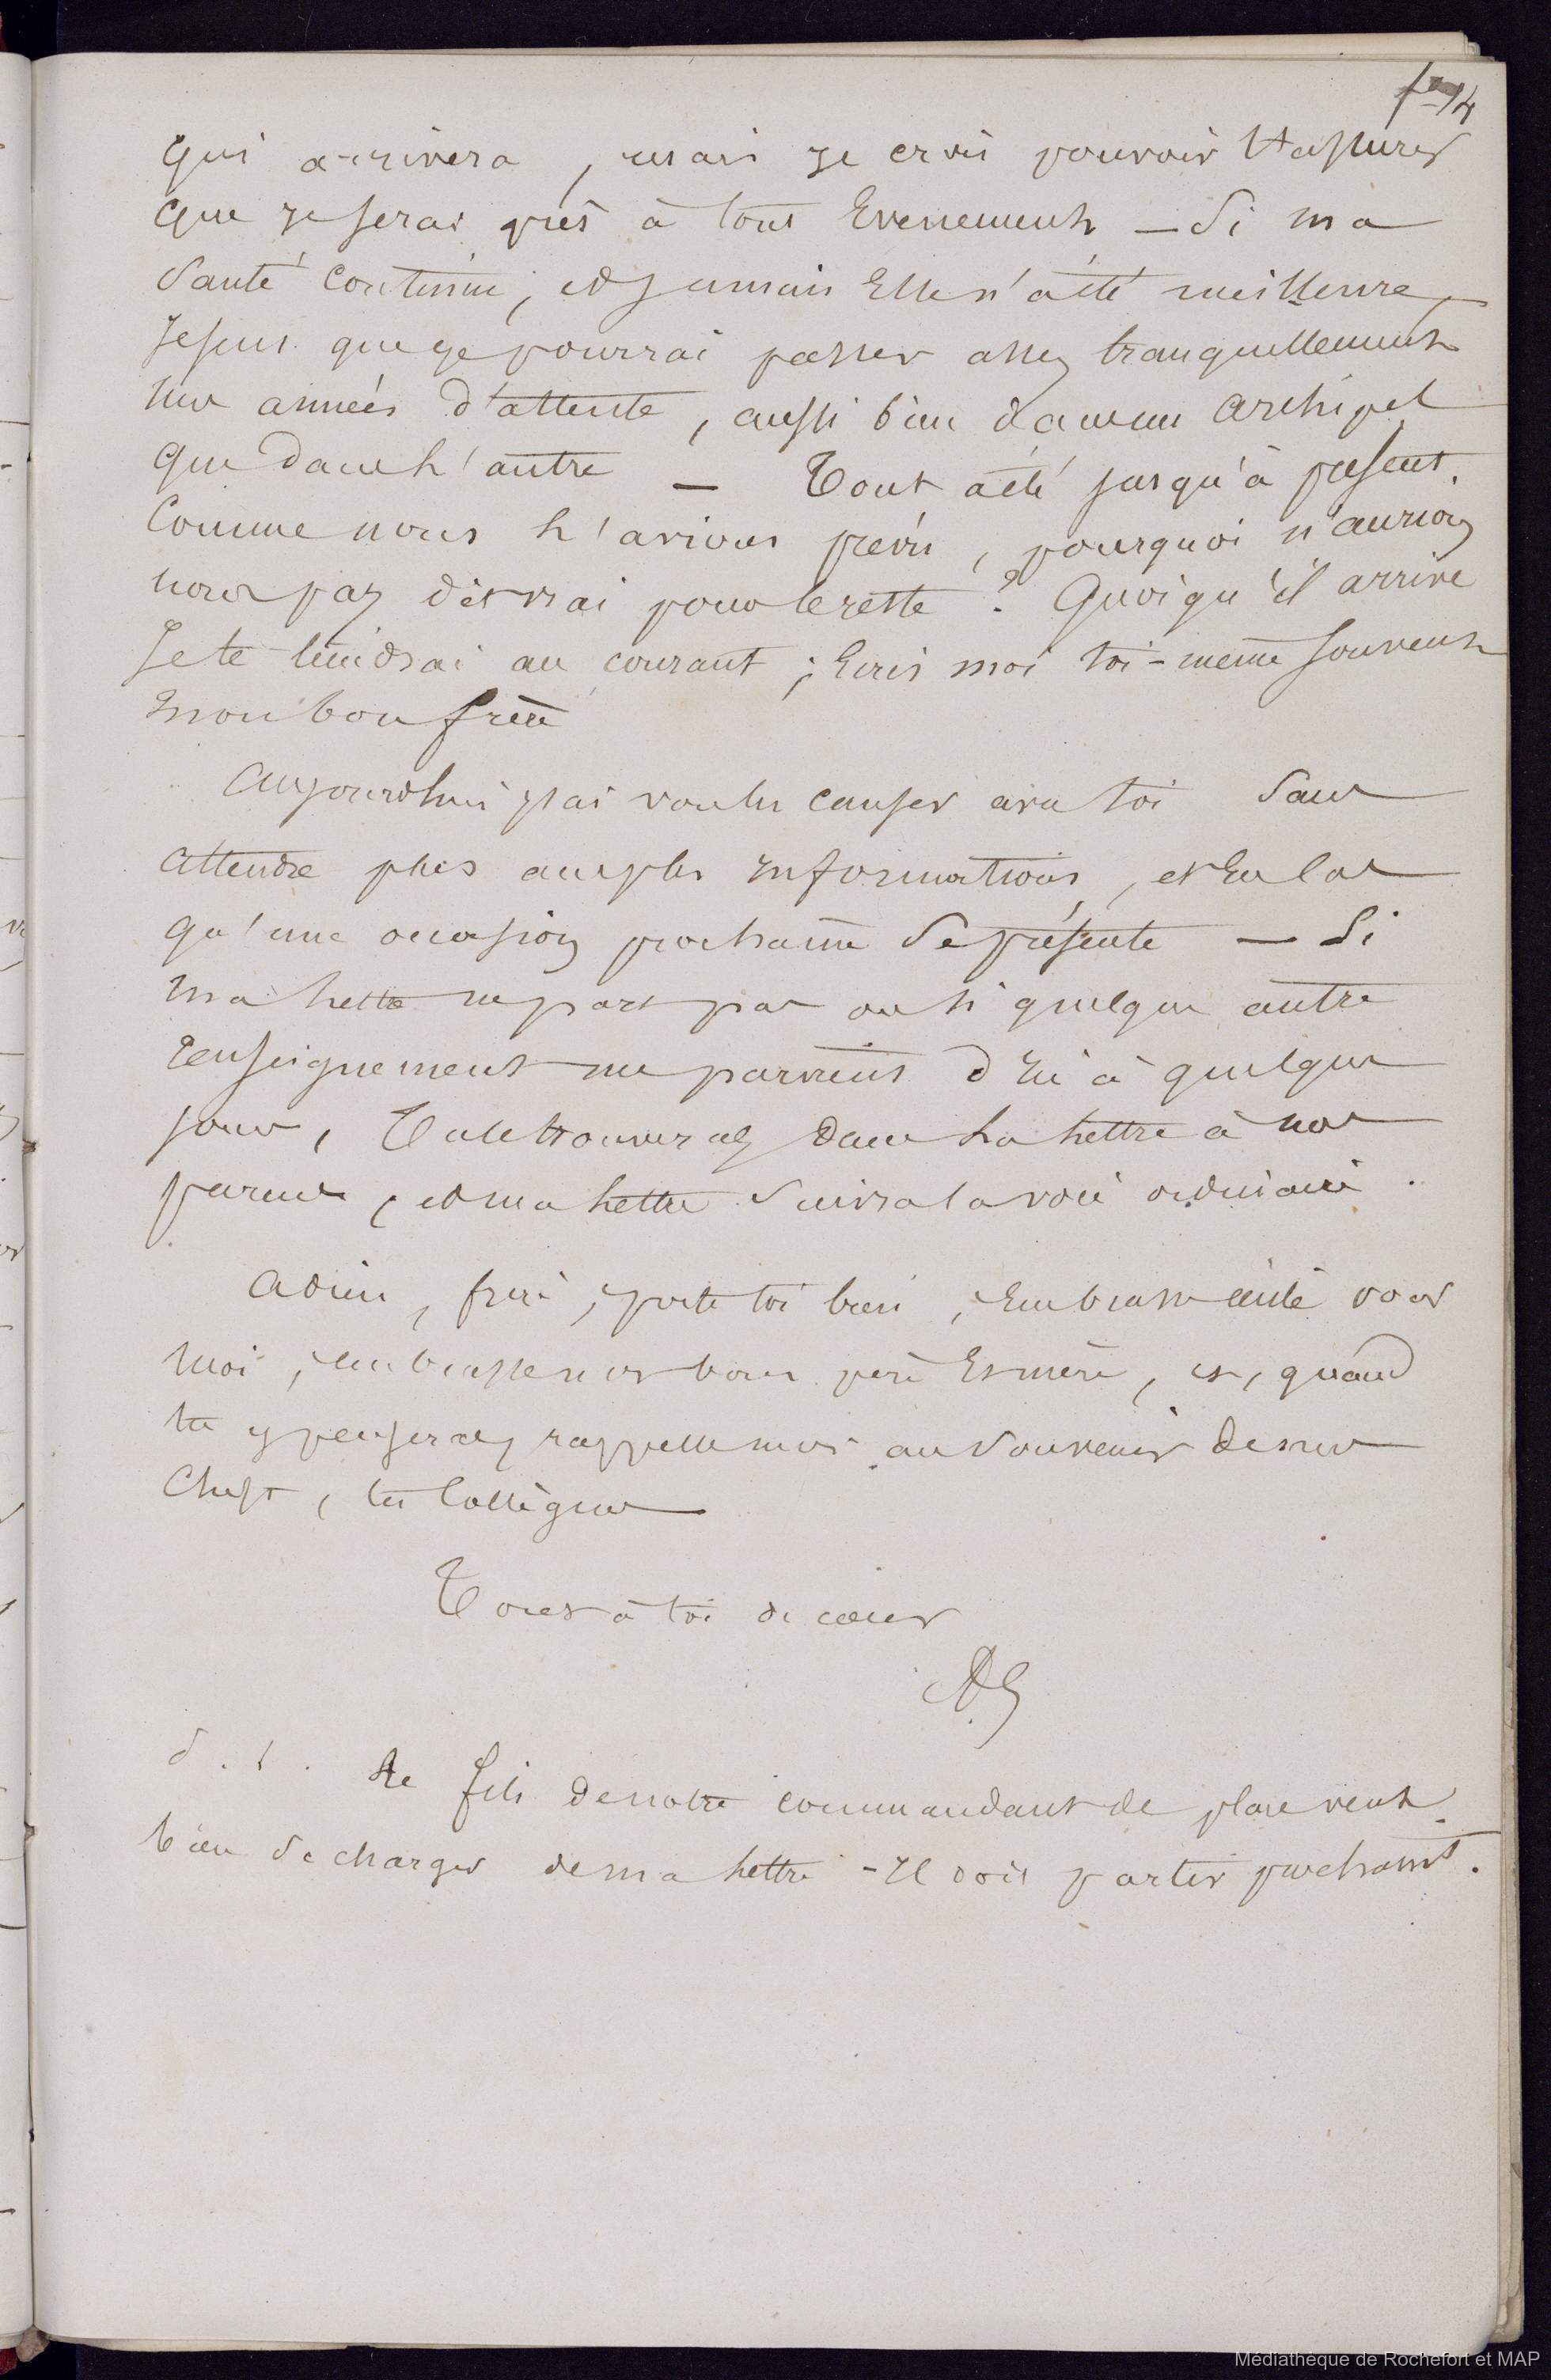 14
qui arrivera, mais je crois pouvoir t'assurer
que je serai prêt à tout Evenement — Si ma
Santé continue, et jamais Elle n'a été meilleure,
Je sens que je pourrai passer assez tranquillement
mes années d'attente, aussi bien dans un archipel
que dans l'autre — Tout a été jusqu'à présent
Comme nous l'avions prévu, pourquoi n'aurions
nous pas dit vrai pour le reste ? Quoiqu'il arrive
Je te tiendrai au courant ; Ecris moi toi-même souvent
mon bon frère
Aujourdhui j'ai voulu causer avec toi Sans
attendre plus amples informations, et En cas
qu'une occasion prochaine Se présente — Si
ma lettre ne part pas ou si quelque autre
renseignement me parvient d'Ici à quelques
jours, Tu le trouveras dans la lettre à nos
parents, et ma lettre Suivra la voie ordinaire.
Adieu, frère, porte toi bien, Embrasse pour
moi, embrasse nos bons père Et mère, et, quand
tu y penseras, rappelle moi au Souvenir de mes
Chefs, les Collègues
Tout à toi de cœur
Le fils de notre commandant de place veut
bien Se charger de ma lettre - Il doit partir prochaint.
Médiathèque de Rochefort et MAP